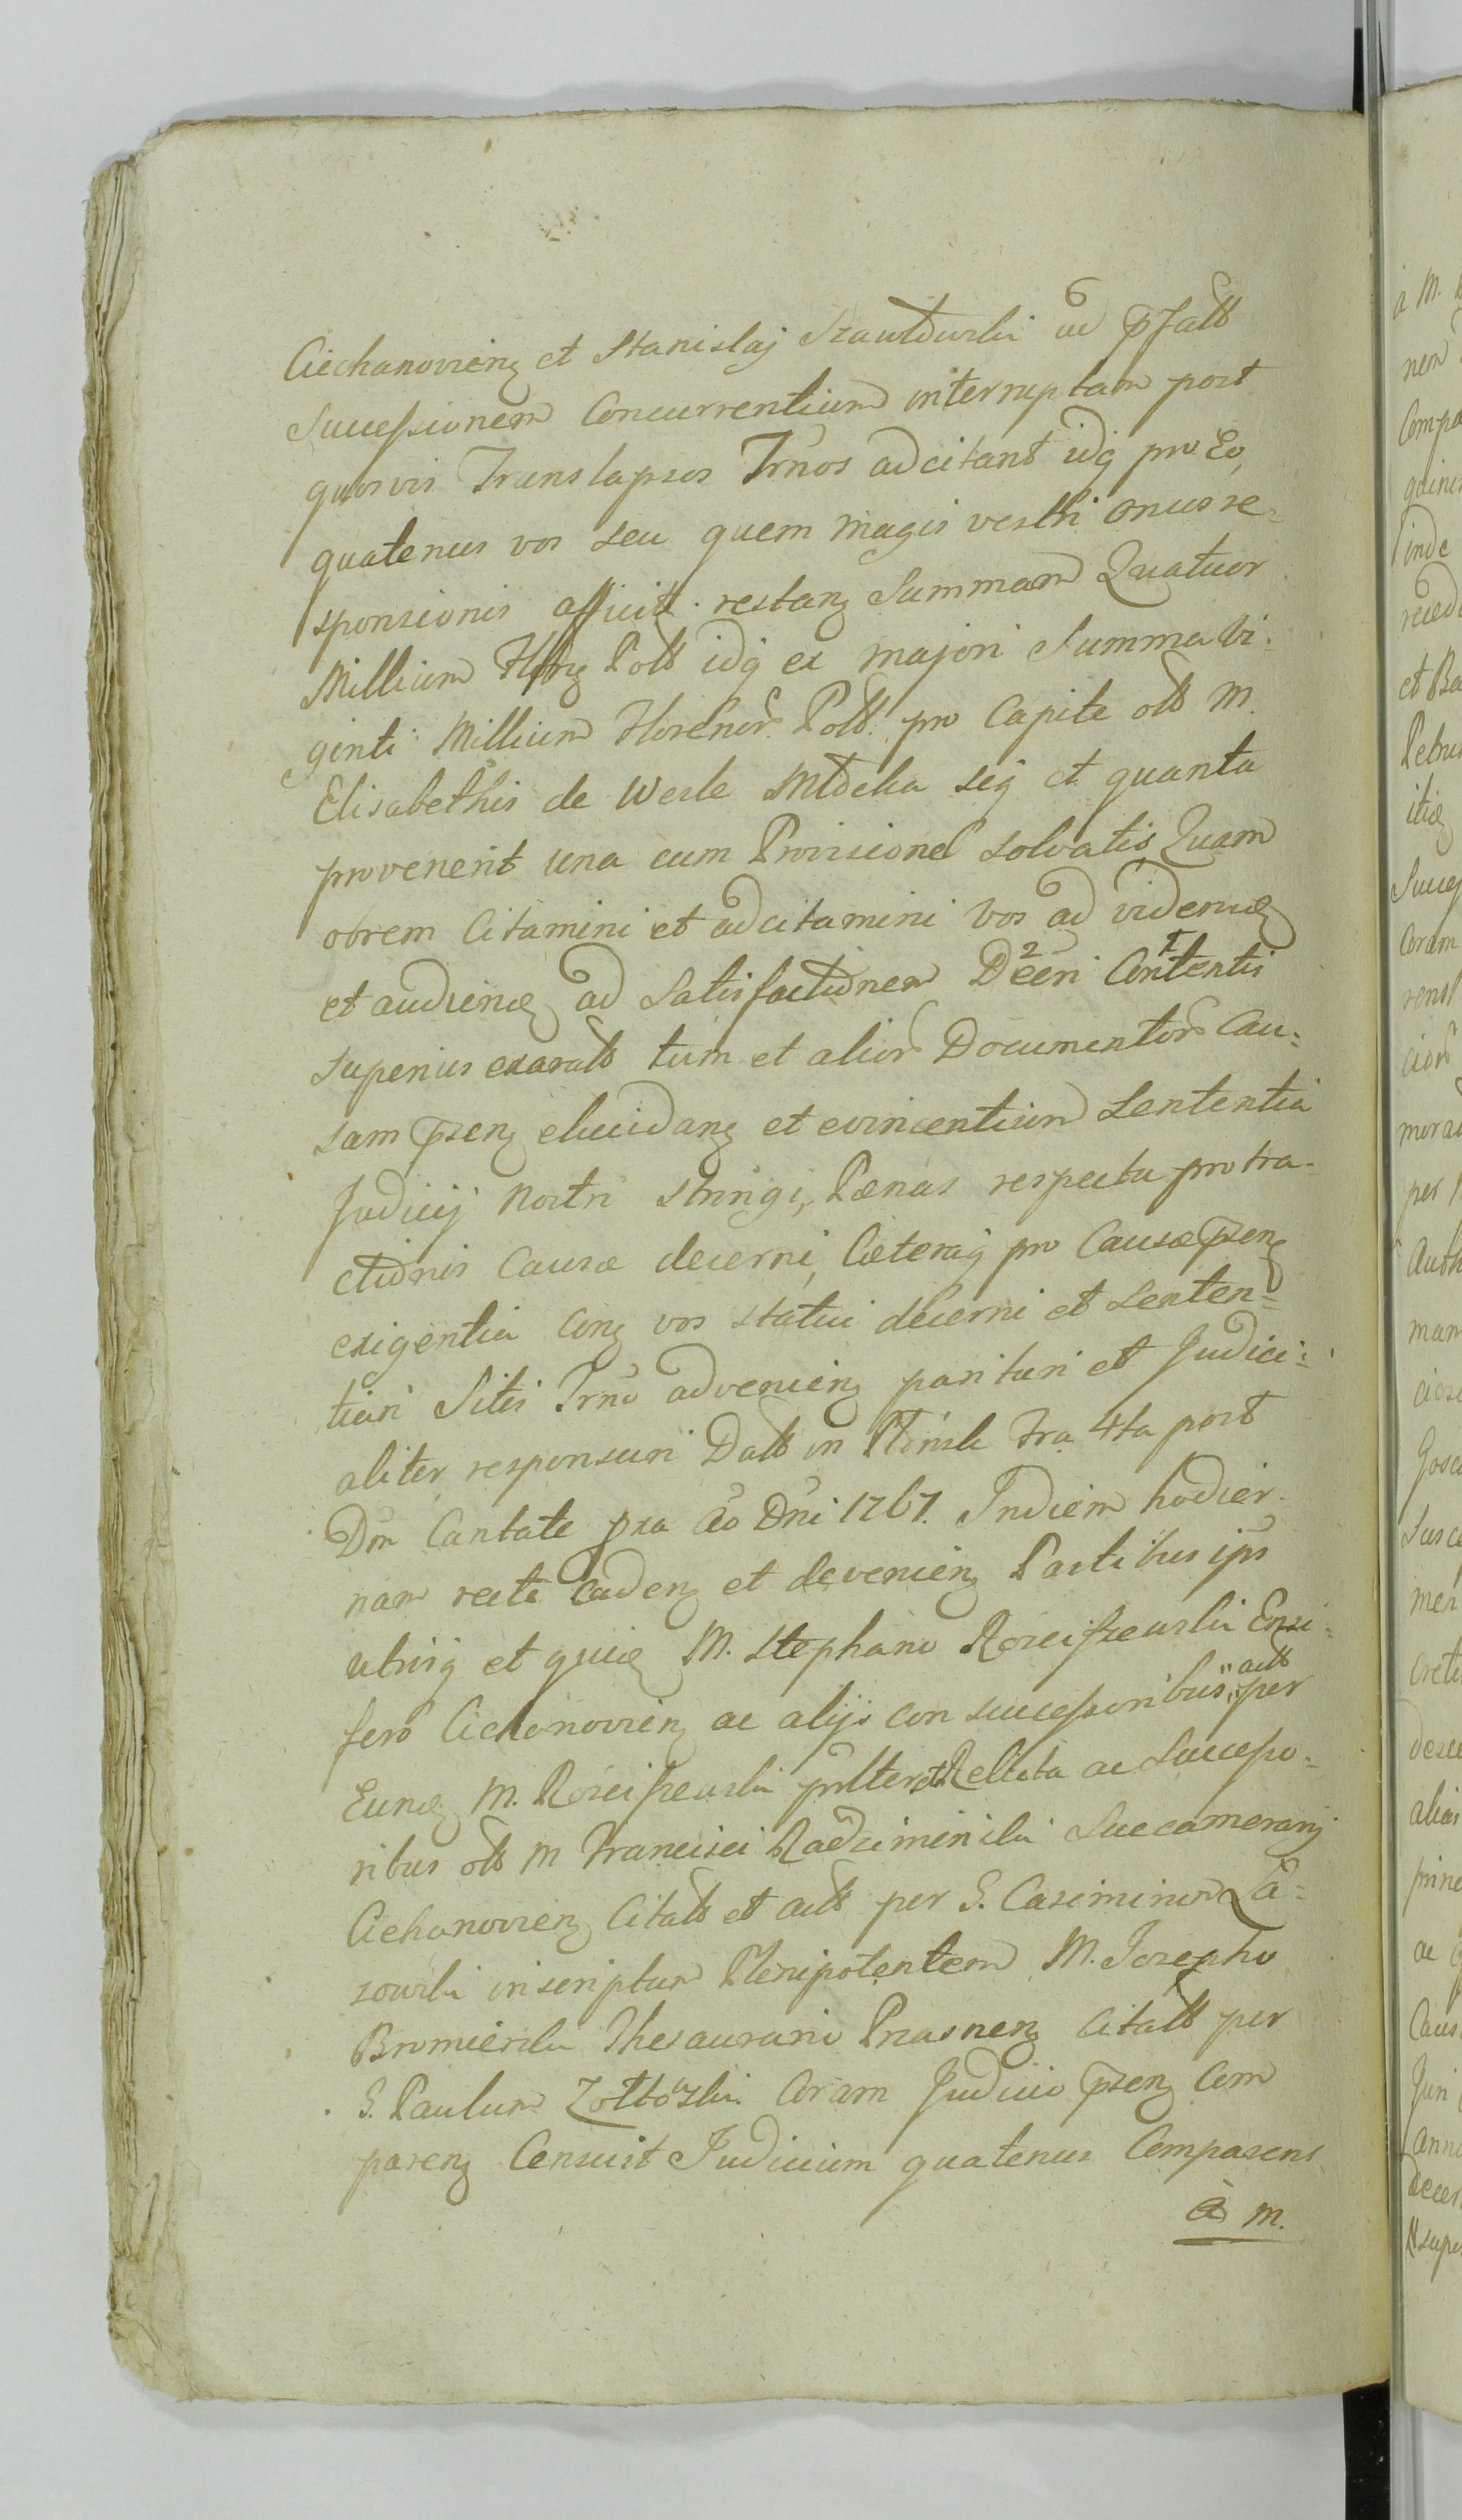 Ciechanovien et Stanislaj Szawłowski ad pfatt
Successionem Concurrentium interruptam post
quosvis Translapsos Trnos adcitant idq pro Eo,
quatenus vos seu quem magis vestri onus re=
sponsionis afficit. restan Summam Quatuor
Millium Flor Poll idq ex majori Summa vi=
ginti Millium Florenor Poll pro Capite oll M.
Elisabethis de Wesle seq et quanta
provenerit una cum Provisione solvatis Quam
obrem Citamini et adcitamini Vos ad vidend
et audiend ad Satisfactionem Deeri Contentis
superius exaratt tum et alior Documentor Cau=
sam psen elucidan et evincentium Sententia
Judicij Nostri stringi, Pænas respectu protra=
ctionis Causæ decerni, Cæteraq pro Causæ psen
exigentia Con vos statui decerni et senten=
tiari Sitis Trno advenien parituri et Judici=
aliter responsuri Datt in Płońsk fra 4ta post
Dom Cantate pxa Ao Dni 1767. Indiem hodier=
nam recte caden et devenien Partibus ips
utrisq et quid M. Stephano Rosciszewski Ensi=
fero Ciechanovien ac alijs con successoribus "actt" per
Eund M. Rosciszewski Relicta ac Successo=
ribus oll M Francisci Radziminski Succamerarij
Ciechanovien Citatt et actt per G. Casimirum Ła=
zowski inscriptum Plenipotentem M. Josepho
Bromierski Thesaurario Prasnen Citatt per
G. Paulum Zołtowski Coram Judicio psen Com
paren Censuit Judicium quatenus Comparens
à M.
à M.
nem
Compa
inde
et Ba
Coram
per
mam
men
alias
prine
ac
Caus
Juri